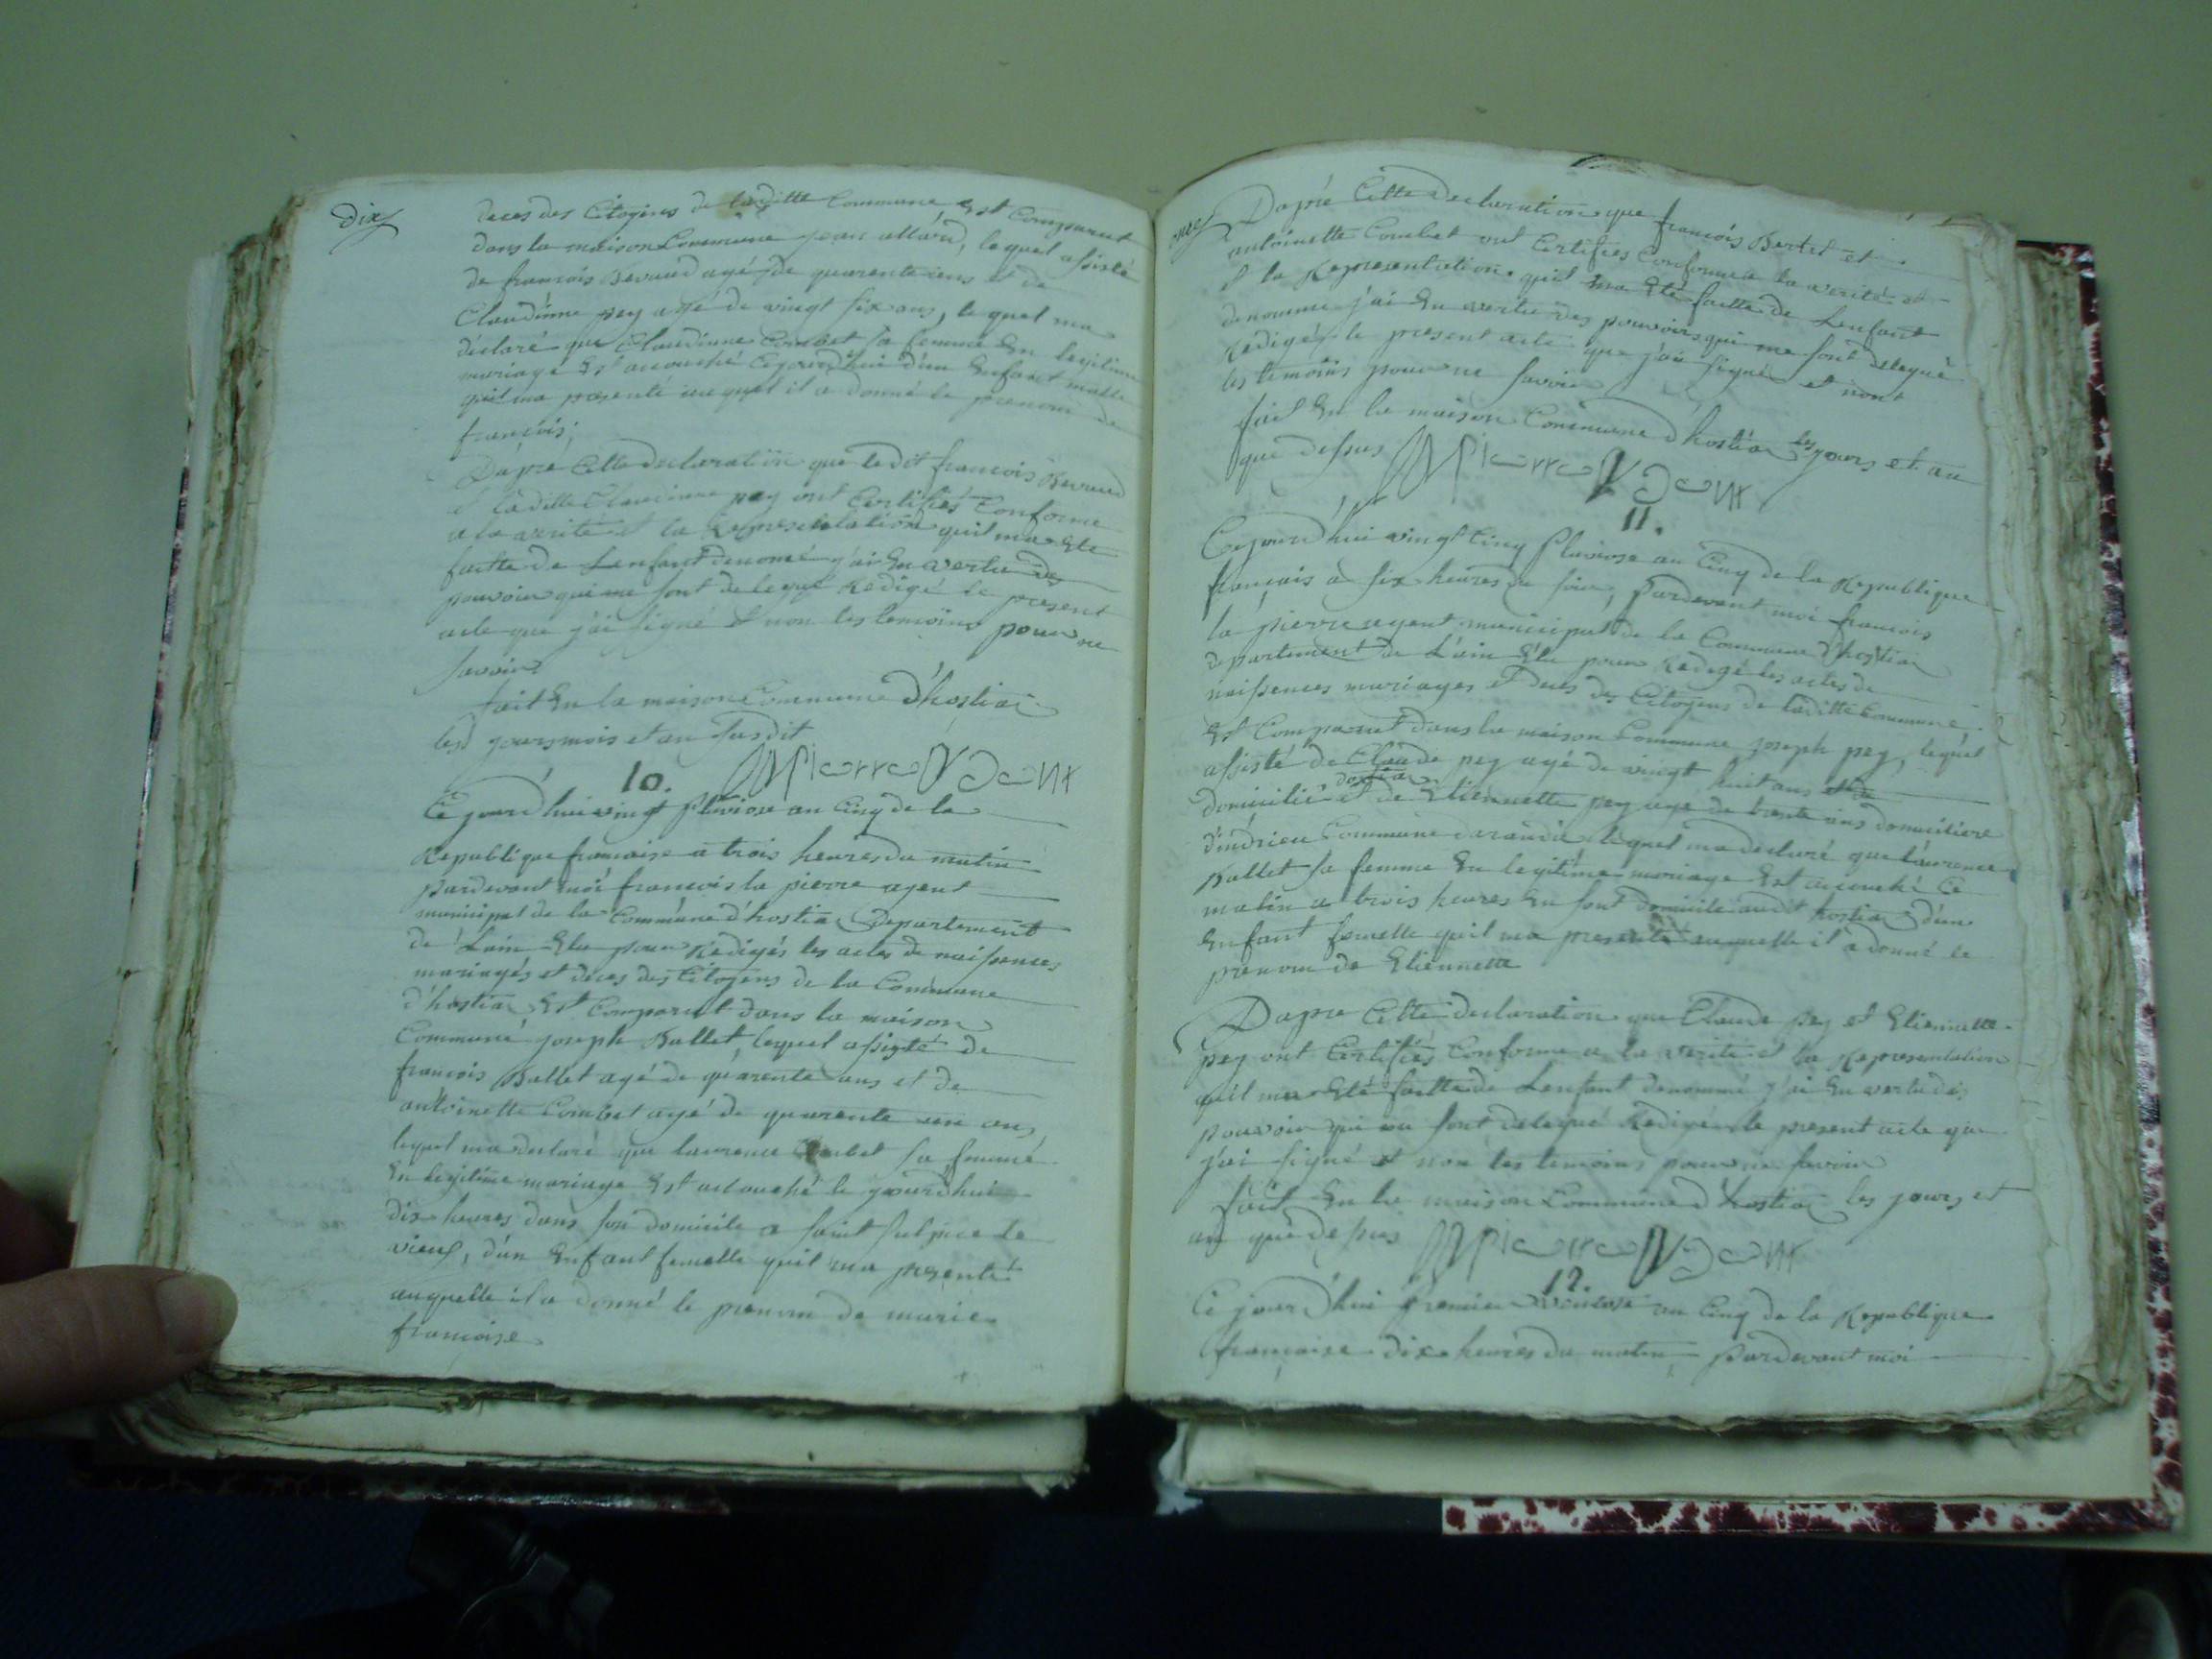 dix
deces des Citoyens de laditte Commune Est Comparut
dans la maison Commune jean allard, lequel assisté
de francois Bevoud agé de quarente ans et de
Claudinne pey agé de vingt six ans, le quel ma
déclaré que Claudinne Combet sa femme En legitime
mariage Est accouché Cejourd'hui d'un Enfant malle
quil ma presenté auquel il a donné le prenom de
francois;
Dapré Cette declaration que ledit francois
et laditte Claudinne pey ont Certifiés Conforme
a la verité et la Representation quil ma Eté
faitte de Lenfant denomé j'ai En vertu des
pouvoir qui me sont delegué Redigé le present
acte que j'ai signé et non les temoins pour ne
savoir
fait En la maison Commune d'hostia
lesd jours mois et an susdit
10.
Ce jourd'hui vingt pluviose an Cinq de la
Republique francaise a trois heures du matin
pardevant moi francois la pierre agent
municipal de la Commune d'hostia Departement
de Lain Elu pour Redigés les actes de naissences
mariagés et deces des Citoyens de la Commune
d'hostia Est Comparut dans la maison
Commune joseph Ballet, lequel assisté de
francois Ballet agé de quarente ans et de
antoinette Combet agé de quarente un ans,
lequel ma declaré que laurence Combet sa femme
En legitime mariage Est accouché le jourd'hui
dix heures dans son domicile a saint sulpice le
vieux, d'un Enfant femelle quil ma presenté
auquelle il a donné le prenom de marie
francoise
onze
Dapré Cette declaration que francois et
antoinette Combet ont Certifiés Conforme a la verité et
et la Representation quil ma Eté faitte de Lenfant
denommé j'ai En vertu des pouvoirs qui me sont delegué
Redigés le present acte que j'ai signé et nont
les temoins pour ne savoir
fait En la maison Commune d'hostia les jours et an
que dessus
11.
Cejourd'hui vingt Cinq pluviose an Cinq de la Republique
français a six heures du soir, Pardevant moi francois
la pierre agent municipal de la Commune d'hostia
departement de L'ain Elu pour Redigé les actes de
naissences mariages et deces des Citoyens de laditte Commune
Est Comparut dans la maison Commune joseph pey, lequel
assisté de Claude pey agé de vingt huit ans
domicilié dostia et de Etiennette pey agé de trente ans domiciliere
dindrieu Commune darandas lequel ma declaré que Laurence
Ballet sa femme En legitime mariage Est accouché Ce
matin a trois heures En sont domicile audit hostia d'un
Enfant femelle quil ma presenté auquelle il a donné le
prenom de Etiennette
Dapre Cette declaration que Claude pey et Etiennette
pey ont Certifiés Conforme a la verité et la Representation
quil ma Eté faitte de Lenfant denommé j'ai En vertu des
pouvoir qui me sont delegué Redigé le present acte que
j'ai signé et non les temoins pour ne savoir
fait En la maison Commune d'hostia les jours et
an que dessus
12.
Ce jourd'hui premier ventose an Cinq de la Republique
francaise dix heures du matin Pardevant moi